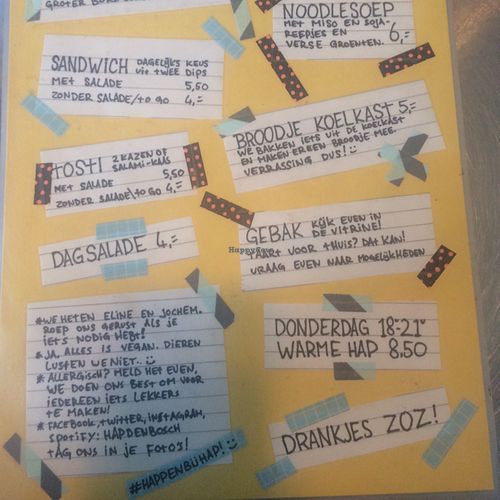 NOODLESOEP
MET MISO EN SOJA-
REEPJES EN
VERSE GROENTEN. 6,=
SANDWICH DAGELIJKS KEUS
UIT TWEE DIPS
MET SALADE 5,50
ZONDER SALADE/TO GO 4,=
BROODJE KOELKAST 5,=
WE BAKKEN IETS UIT DE KOELKAST
EN MAKEN ER EEN BROODJE MEE.
VERRASSING DUS!
TOSTI 2 KAZEN OF
SALAMI-KAAS
MET SALADE 5,50
ZONDER SALADE\TO GO 4,=
GEBAK KIJK EVEN IN
DE VITRINE!
TAART VOOR THUIS? DAT KAN!
VRAAG EVEN NAAR MOGELIJKHEDEN
HappyCow
DAGSALADE 4,=
* WE HETEN ELINE EN JOCHEM.
ROEP ONS GERUST ALS JE
IETS NODIG HEBT!
* JA, ALLES IS VEGAN. DIEREN
LUSTEN WE NIET..
* ALLERGISCH? MELD HET EVEN,
WE DOEN ONS BEST OM VOOR
IEDEREEN IETS LEKKERS
TE MAKEN!
* FACEBOOK, TWITTER, INSTAGRAM,
SPOTIFY: HAPDENBOSCH
TAG ONS IN JE FOTO'S!
#HAPPENBIJHAP!
DONDERDAG 18-21
WARME HAP 8,50
DRANKJES ZOZ!